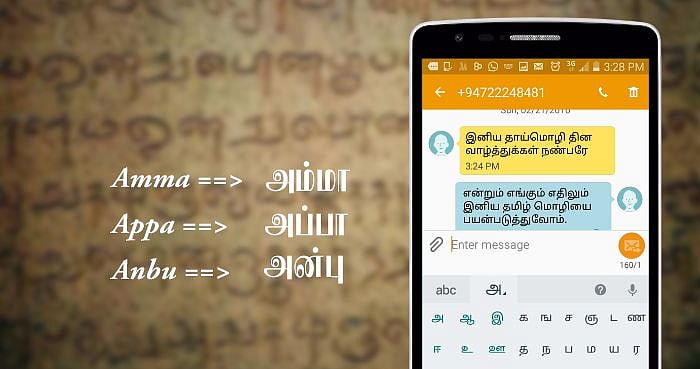 Amma ==> அம்மா
Appa ==> அப்பா
Anbu ==> அன்பு
3G
3:28 PM
+94722248481
Sun, 02/21/2016
இனிய தாய்மொழி தின
வாழ்த்துக்கள் நண்பரே
3:24 PM
என்றும் எங்கும் எதிலும்
இனிய தமிழ் மொழியை
பயன்படுத்துவோம்.
Enter message
160/1
abc அ
அ ஆ இ க ங ச ஞ ட ண
ஈ உ ஊ த ந ப ம ய ர